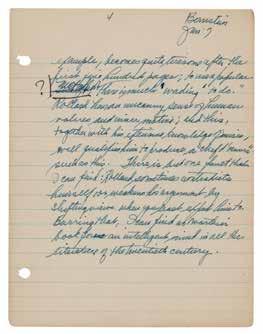 4
Bernstein
Jan. 7
example, becomes quite tiresome after the
first six hundred pages; to use a popular
? there is much "wading" to do.
Rolland has an uncanny sense of human
values and inner motives; and this,
together with his extensive knowledge of music,
well qualifies him to produce a chef d'œuvre
such as this. There is but one fault that
I can find; Rolland sometimes contradicts
himself or weakens his argument by
shifting views when you least expect him to.
Barring that, I can find no worthier
book for an intelligent mind in all the
literature of the twentieth century.